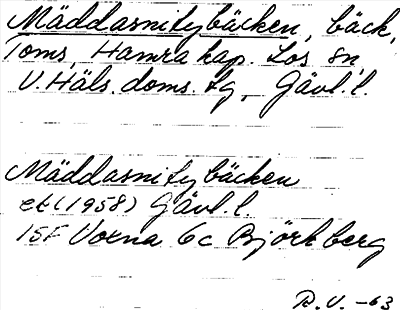 Mäddasnitybäcken, bäck,
Toms, Hamra kap. Los sn,
V. Häls. doms. tg, Gävl. l.
Mäddasnitybäcken
ek (1958) Gävl. l.
15F Voxna 6c Björkberg
R. V. -63